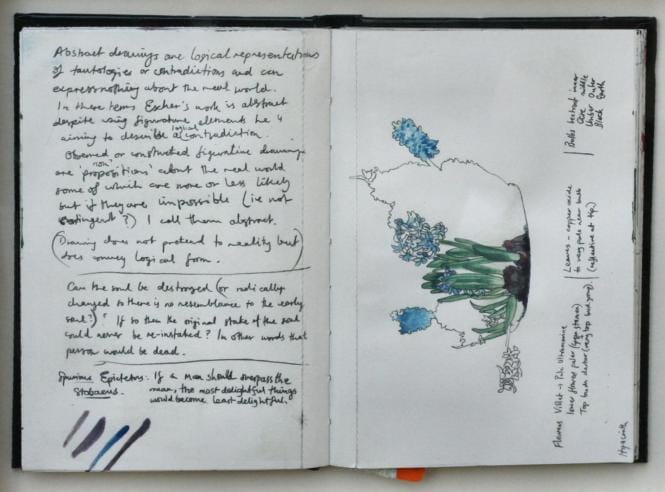 Abstract drawings are logical representations
of tautologies or contradictions and can
express nothing about the real world.
In these terms Escher's work is abstract
despite using figurative elements he is
aiming to describe a logical contradiction.
Observed or constructed figurative drawings
are 'propositions' about the real world
some of which are more or less likely
but if they are impossible (ie not
contingent?) I call them abstract.
(Drawing does not pretend to reality but
does convey logical form.)
Can the soul be destroyed (or radically
changed so there is no resemblance to the early
soul?)? If so then the original state of the soul
could never be re-instated? In other words that
person would be dead.
Spurious Epictetus: If a man should overpass the
Stobaeus. mean, the most delightful things
would become least delightful.
Bulbs
inner
middle
Outer
Black
Leaves - copper oxide
to very pale near bulb
(reflective at tip).
Flowers Violet → Pale Ultramarine
lower flower paler
Top buds darker
Hyacinth